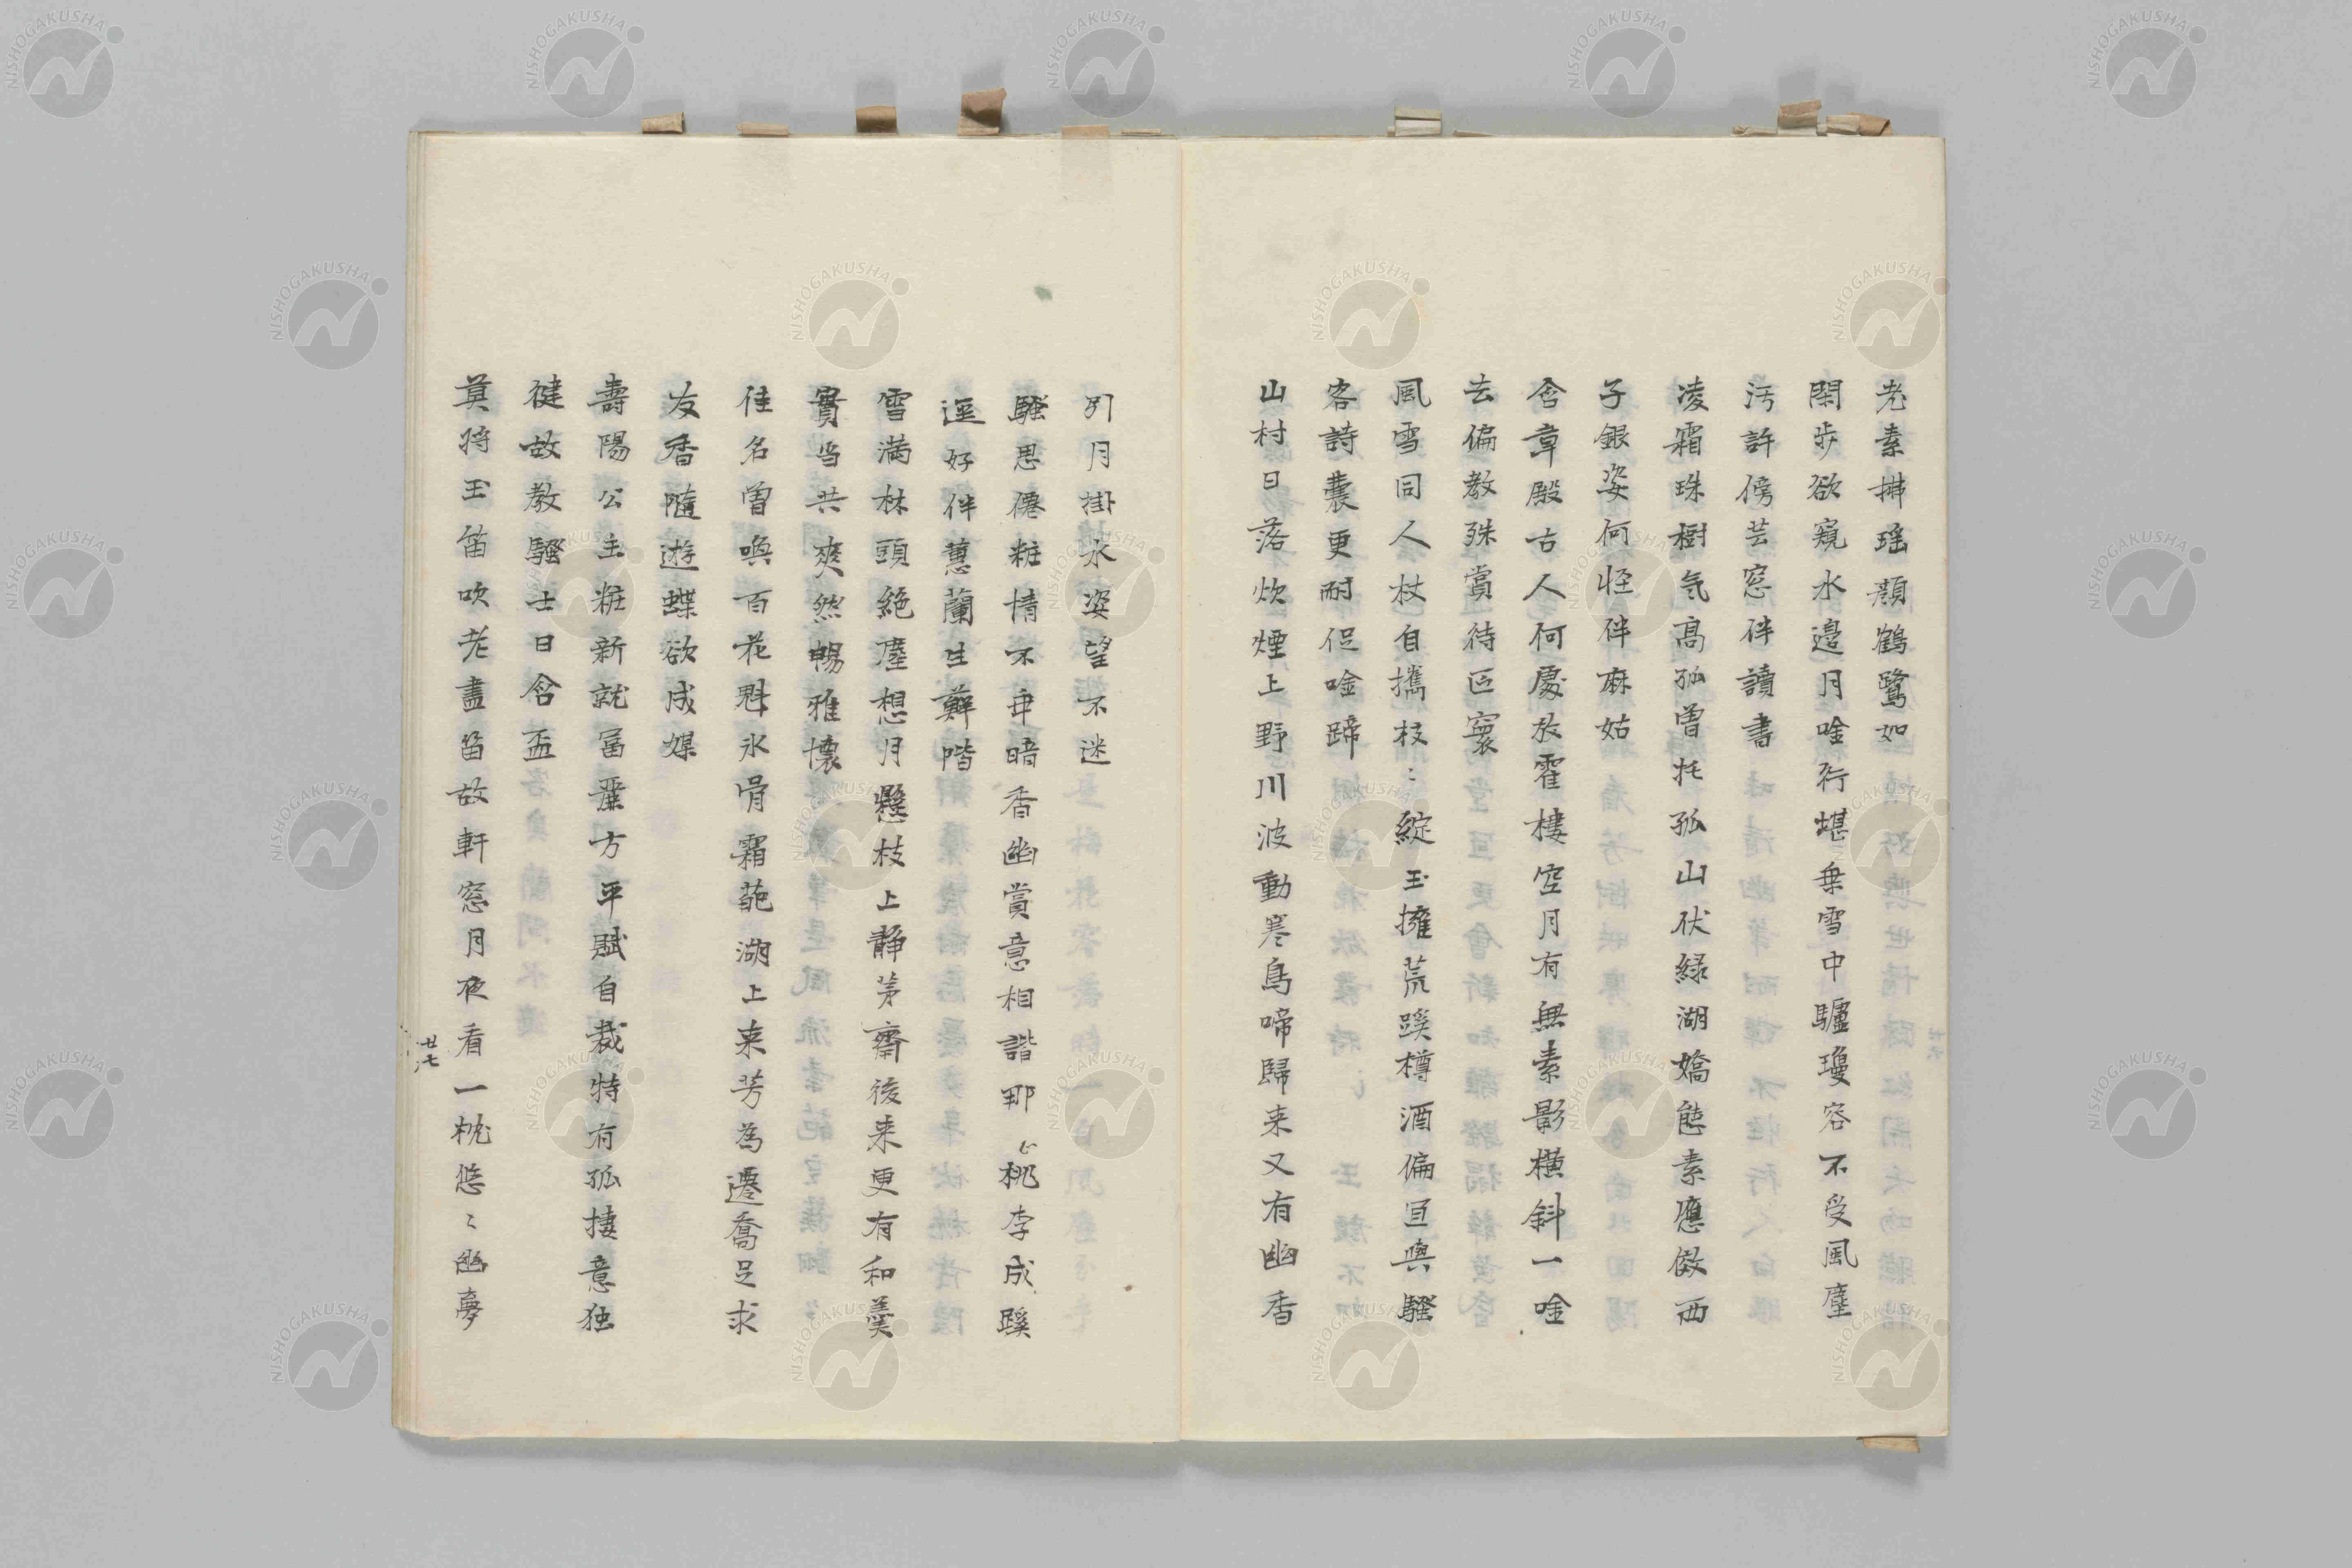 老素拂瑶顔鶴鷺如
閑歩欲窺水邉月唫行堪乗雪中驢瓊容不受風塵
汚許傍芸窓伴讀書
凌霜珠樹気高孤曽托孤山伏緑湖嬌態素應倣西
子銀姿何恠伴麻姑
含章殿古人何處放霍樓空月有無素影横斜一唫
去偏教殊賞待匹寰
風雪同人杖自攜枝〻綻玉擁荒蹊樽酒偏宜與騒
客詩囊更耐促唫蹄
山村日落炊煙上野川波動寒鳥啼歸来又有幽香
引月掛氷姿望不迷
騒思僊粧情不乖暗香幽賞意相諧耶〻桃李成蹊
逕好伴蕙蘭生蘚階
雪満林頭絶塵想月懸枝上静茅齋後来更有和羹
實当共爽然暢雅懷
佳名曽喚百花魁氷骨霜葩湖上来芳為遷喬足求
友香隨遊蝶欲成媒
壽陽公主粧新就冨麗方平賦自裁特有孤棲意独
健故教騒士日含盃
莫将玉笛吹老盡留故軒窓月夜看一枕悠〻幽夢
廿七
NISHOGAKUSHA